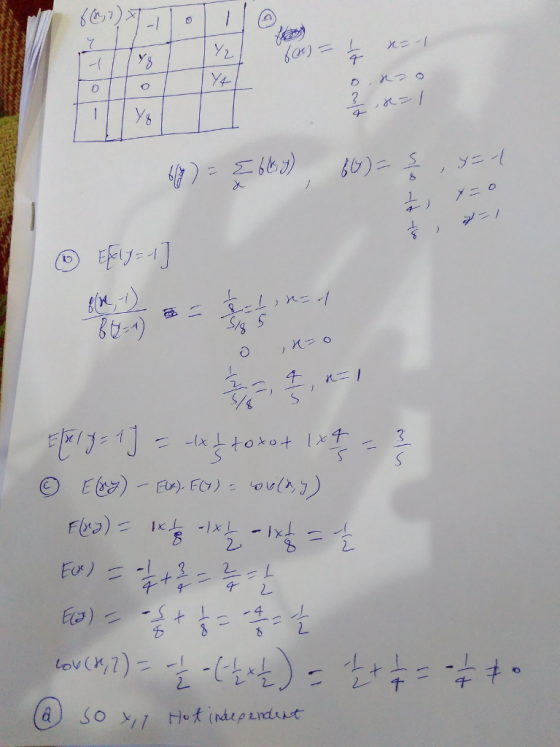 f(x,y) x -1 0 1
y
-1 1/8 1/2
0 0 1/4
1 1/8
(a) f(x) = 1/4 x=-1
0, x=0
3/4, x=1
f(y) = Σx f(x,y), f(y) = 5/8, y=-1
1/4, y=0
1/8, y=1
(b) E[x|y=-1]
f(x,-1)/f(y=1) = (1/8)/(5/8) = 1/5, x=-1
0, x=0
(1/2)/(5/8) =, 4/5, x=1
E[x|y=-1] = -1×1/5+0×0+ 1×4/5 = 3/5
(c) E(xy) - E(x).E(y) = cov(x,y)
E(xy) = 1×1/8 -1×1/2 -1×1/8 = -1/2
E(x) = -1/4+3/4 = 2/4 = 1/2
E(y) = -5/8 + 1/8 = -4/8 = -1/2
cov(x,y) = -1/2 -(-1/2×1/2) = -1/2+1/4 = -1/4 ≠ 0
(d) SO x,y Not independent